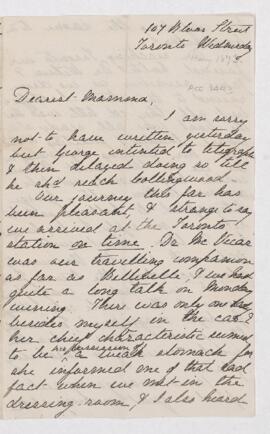 107 Bloor Street
Toronto Wednesday
Dearest Mamma,
I am sorry
not to have written yesterday
but George intended to telegraph
& then delayed doing so till
he shd reach Collingwood.
Our journey thus far has
been pleasant, & strange to say
we arrived at the Toronto
station on time. Dr. McVicar
was our travelling companion
as far as Belleville & we had
quite a long talk on Monday
evening. There was only one
besides myself in the car &
her chief characteristic seemed
to be a weak stomach for
she informed me of that sad
fact when we met in the
dressing-room, & I also heard